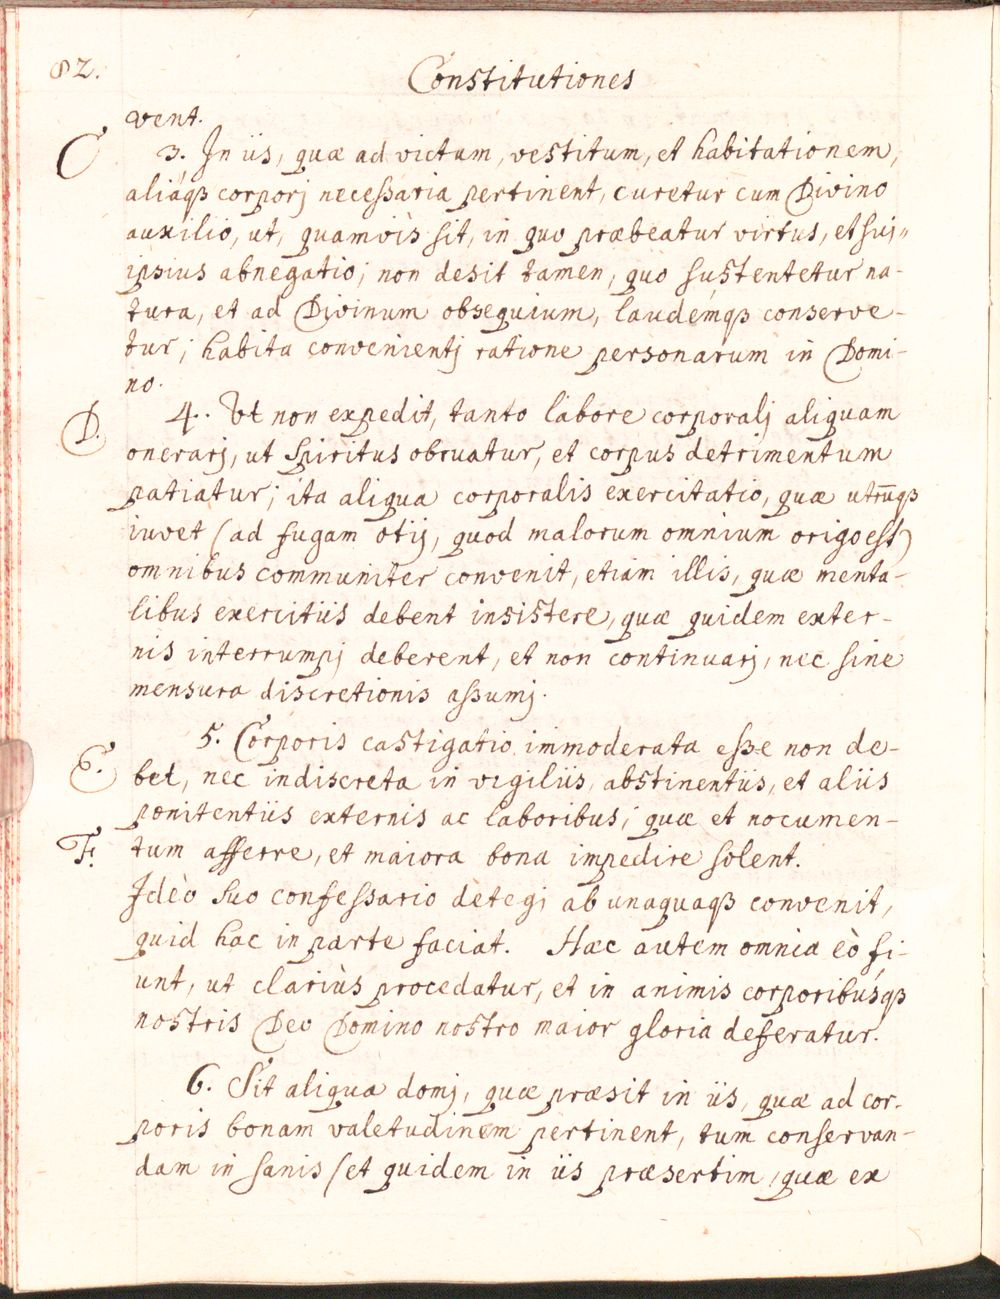 82.
Constitutiones
vent.
C
3. In iis, quæ ad victum, vestitum, et habitationem,
aliáqß corporj necessaria pertinent, curetur cum Divino
auxilio, ut, quamvis sit, in quo præbeatur virtus, et suj„
ipsius abnegatio; non desit tamen, quo sustentetur na-
tura, et ad Divinum obsequium, laudémqß conserve-
tur; habita convenientj ratione personarum in Domi-
no.
D.
4. Ut non expedit, tanto labore corporalj aliquam
onerarj, ut Spiritus obruatur, et corpus detrimentum
patiatur; ita aliqua corporalis exercitatio, quæ utrūqß
iuvet (ad fugam otij, quod malorum omnium origo est)
omnibus communiter convenit, etiam illis, quæ menta-
libus exercitiis debent insistere, quæ quidem exter-
nis interrumpj deberent, et non continuarj, nec sine
mensura discretionis assumj.
5. Corporis castigatio immoderata esse non de-
E.
bet, nec indiscreta in vigiliis, abstinentiis, et aliis
pœnitentiis externis ac laboribus; quæ et nocumen-
F.
tum afferre, et maiora bona impedire solent.
Ideò suo confessario detegj ab unaquaqß convenit,
quid hac in parte faciat. Hæc autem omnia eò fi-
unt, ut clariùs procedatur, et in animis corporibúsqß
nostris Deo Domino nostro maior gloria deferatur.
6. Sit aliqua domj, quæ præsit in iis, quæ ad cor-
poris bonam valetudinem pertinent, tum conservan-
dam in sanis (et quidem in iis præsertim, quæ ex